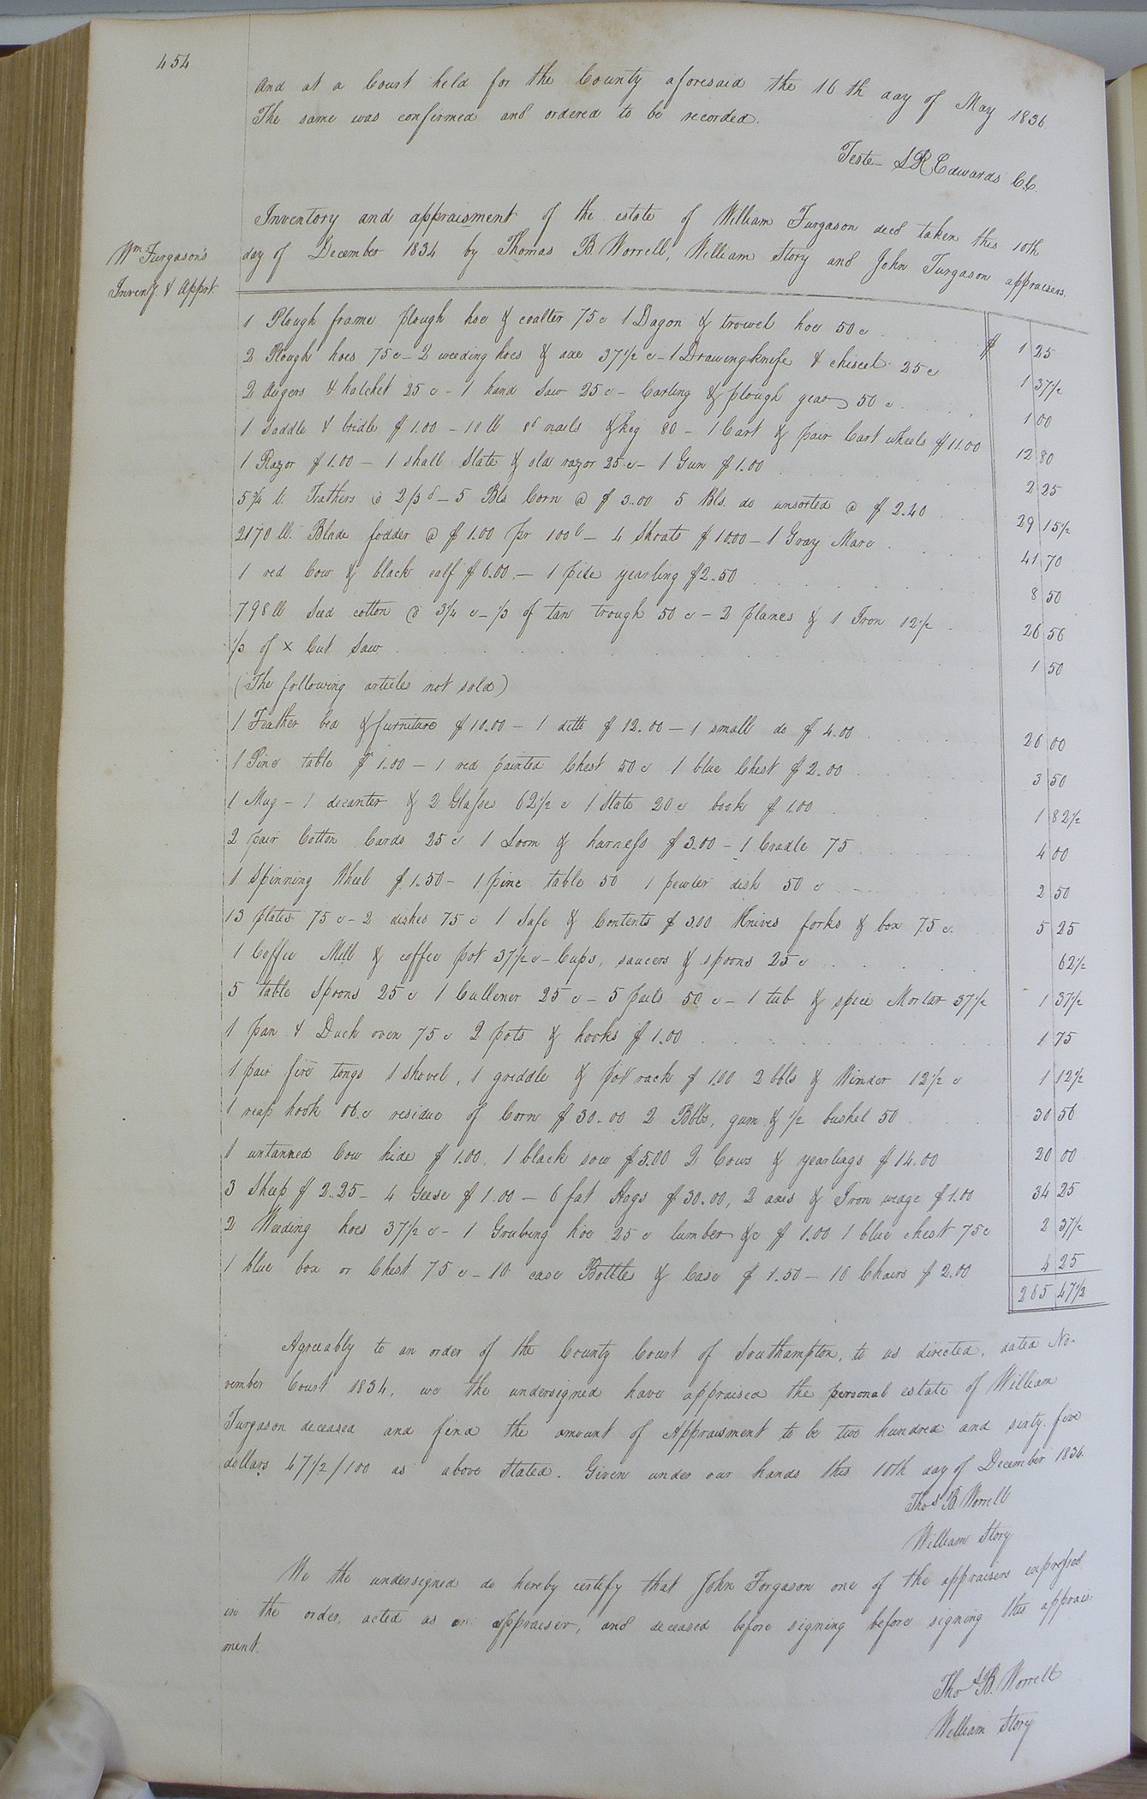 454
And at a Court held for the County aforesaid the 16th day of May 1836
The same was confirmed and ordered to be recorded.
Teste S R Edwards C.C.
Inventory and appraisment of the estate of William Furgason decd taken this 10th
day of December 1834 by Thomas B Worrell, William Story and John Furgason appraisers.
Wm Furgason's
Inventy & Appnt
1 Plough frame plough hoe & coalter 75c 1 Dagon & trowel hoe 50c $ 1 25
2 Plough hoes 75c - 2 weeding hoes & axe 37½ c - 1 Drawingknife & chisel 25c 1 37½
2 Augers & hatchet 25c - 1 hand saw 25c - Carting & plough gear 50c 1 00
1 Saddle & bridle $1.00 - 10 lb 8d nails & keg 80 - 1 Cart & pair Cart wheels $11.00 12 80
1 Razor $1.00 - 1 small Slate & old razor 25c - 1 Gun $1.00 2 25
5¾ lb Feathers @ 2/3d - 5 Bls Corn @ $3.00 5 Bls. do unsorted @ $2.40 29 15½
2170 lb. Blade fodder @ $1.00 pr 100lb - 4 Shoats $10.00 - 1 Gray Mare 41 70
1 red Cow & black calf $6.00 - 1 pide yearling $2.50 8 50
798 lb Seed cotton @ 3¼ c - ⅓ of tan trough 50c - 2 planes & 1 Iron 12½ 26 56
⅓ of × Cut Saw 1 50
(The following articles not sold)
1 Feather bed & furniture $10.00 - 1 ditto $12.00 - 1 small do $4.00 26 00
1 Pine table $1.00 - 1 red painted Chest 50c 1 blue Chest $2.00 3 50
1 Mug - 1 decanter & 2 Glasses 62½ c 1 Slate 20c book $1.00 1 82½
2 pair Cotton Cards 25c 1 Loom & harness $3.00 - 1 Cradle 75 4 00
1 Spinning Wheel $1.50 - 1 pine table 50 1 pewter dish 50c 2 50
13 plates 75c - 2 dishes 75c 1 Safe & Contents $3.00 Knives forks & box 75c. 5 25
1 Coffee Mill & coffee pot 37½ c - Cups, saucers & spoons 25c 62½
5 table Spoons 25c 1 Cullener 25c - 5 pails 50c - 1 tub & spice Mortar 37½ 1 37½
1 pan & Duch oven 75c 2 pots & hooks $1.00 1 75
1 pair fire tongs 1 shovel, 1 griddle & pot rack $1.00 2 bbls & Winder 12½ c 1 12½
1 reap hook 06c residue of Corn $30.00 2 Bbls, gum & ½ bushel 50 30 56
1 untanned Cow hide $1.00. 1 black sow $5.00 2 Cows & yearlings $14.00 20 00
3 Sheep $2.25 - 4 Geese $1.00 - 6 fat Hogs $30.00, 2 axes & Iron wedge $1.00 34 25
2 Weeding hoes 37½ c - 1 Grubing hoe 25c lumber &c $1.00 1 blue chest 75c 2 37½
1 blue box or Chest 75c - 10 case Bottles & Case $1.50 - 10 Chairs $2.00 4 25
265 47½
Agreeably to an order of the County Court of Southampton, to us directed, dated No-
vember Court 1834, we the undersigned have appraised the personal estate of William
Furgason deceased and find the amount of Appraisment to be two hundred and sixty five
dollars 47½/100 as above Stated. Given under our hands this 10th day of December 1834.
Thos B Worrell
William Story
We the undersigned do hereby certify that John Forgason one of the appraisers expressed
in the order, acted as an appraiser, and deceased before signing before signing this apprais-
ment.
Thos B. Worrell
William Story